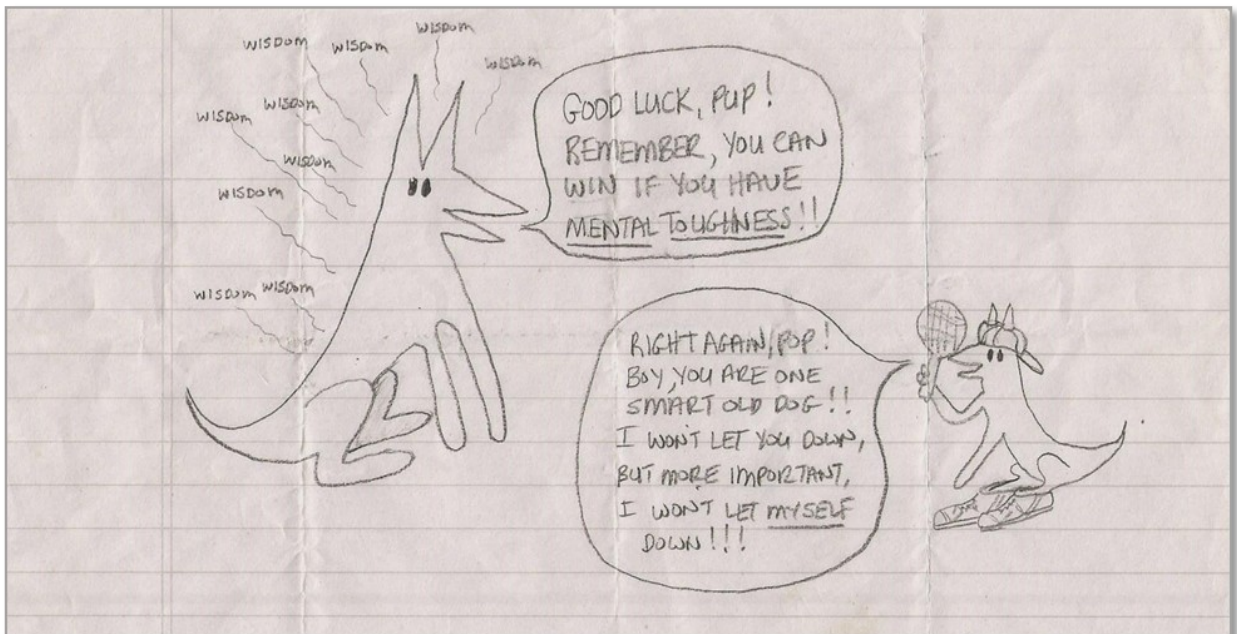 WISDOM
WISDOM
WISDOM
WISDOM
WISDOM
WISDOM
WISDOM
WISDOM
WISDOM
WISDOM
GOOD LUCK, PUP!
REMEMBER, YOU CAN
WIN IF YOU HAVE
MENTAL TOUGHNESS!!
RIGHT AGAIN, POP!
BOY, YOU ARE ONE
SMART OLD DOG!!
I WON'T LET YOU DOWN,
BUT MORE IMPORTANT,
I WON'T LET MYSELF
DOWN!!!